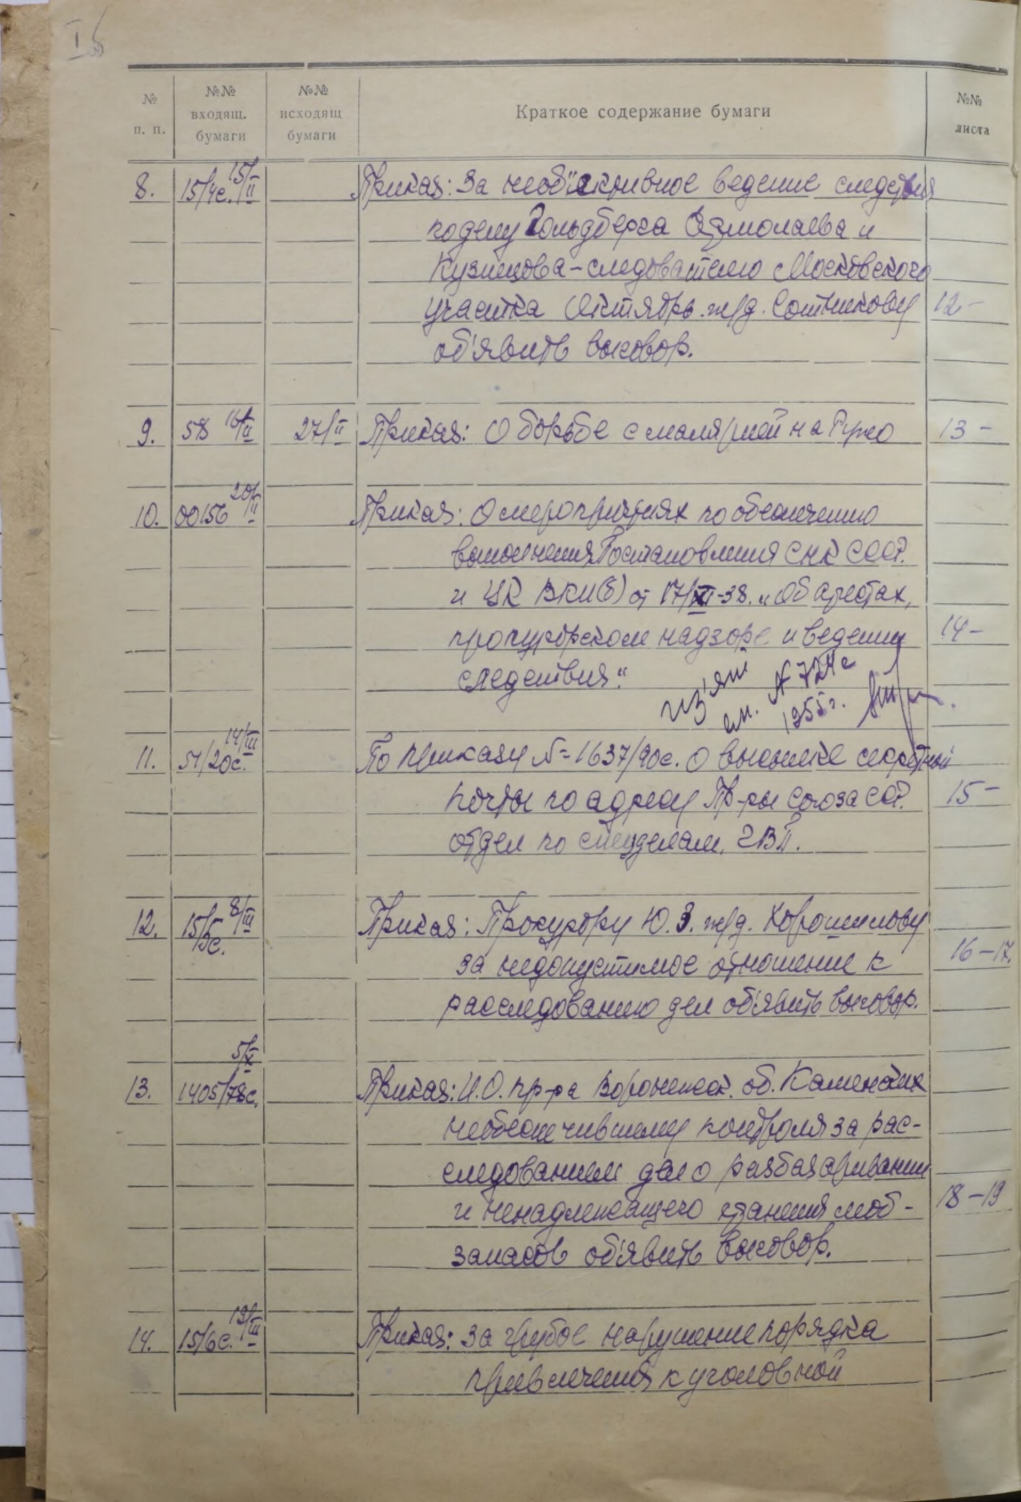 № п. п.
№№ входящ. бумаги
№№ исходящ бумаги
Краткое содержание бумаги
№№ листа
8. 15/4с. 15/II Приказ: За необ"ективное ведение следствия
по делу Гольдберга
Кузнецова – следователю Московского
участка Октябрь. ж/д. Сотникову 12–
об'явить выговор.
9. 58 16/II 27/II Приказ: О борьбе с малярией на 13–
10. 00156 20/II Приказ: О мероприятиях по обеспечению
выполнения Постановления СНК СССР.
и ЦК ВКП(б) от 17/XI-38. „Об арестах,
прокурорском надзоре и ведении 14–
следствия“.
из'ят
см. № 724с
1955 г.
11. 51/20с. 14/III По приказу №=1637/90с. О высылке секретной
почты по адресу Пр-ры Союза ССР. 15–
отдел по спецделам, ГВП.
12. 15/5с. 8/III Приказ: Прокурору Ю.З. ж/д. Хорошилову
за недопустимое отношение к 16–17.
расследованию дел об'явить выговор.
13. 1405/78с. Приказ: И.О. пр-ра Воронежск. об. Каменских
необеспечившему контроля за рас-
следованием дел о разбазаривании
и ненадлежащего хранения моб- 18–19
запасов об'явить выговор.
14. 15/6с. 19/III Приказ: За грубое нарушение порядка
привлечения к уголовной